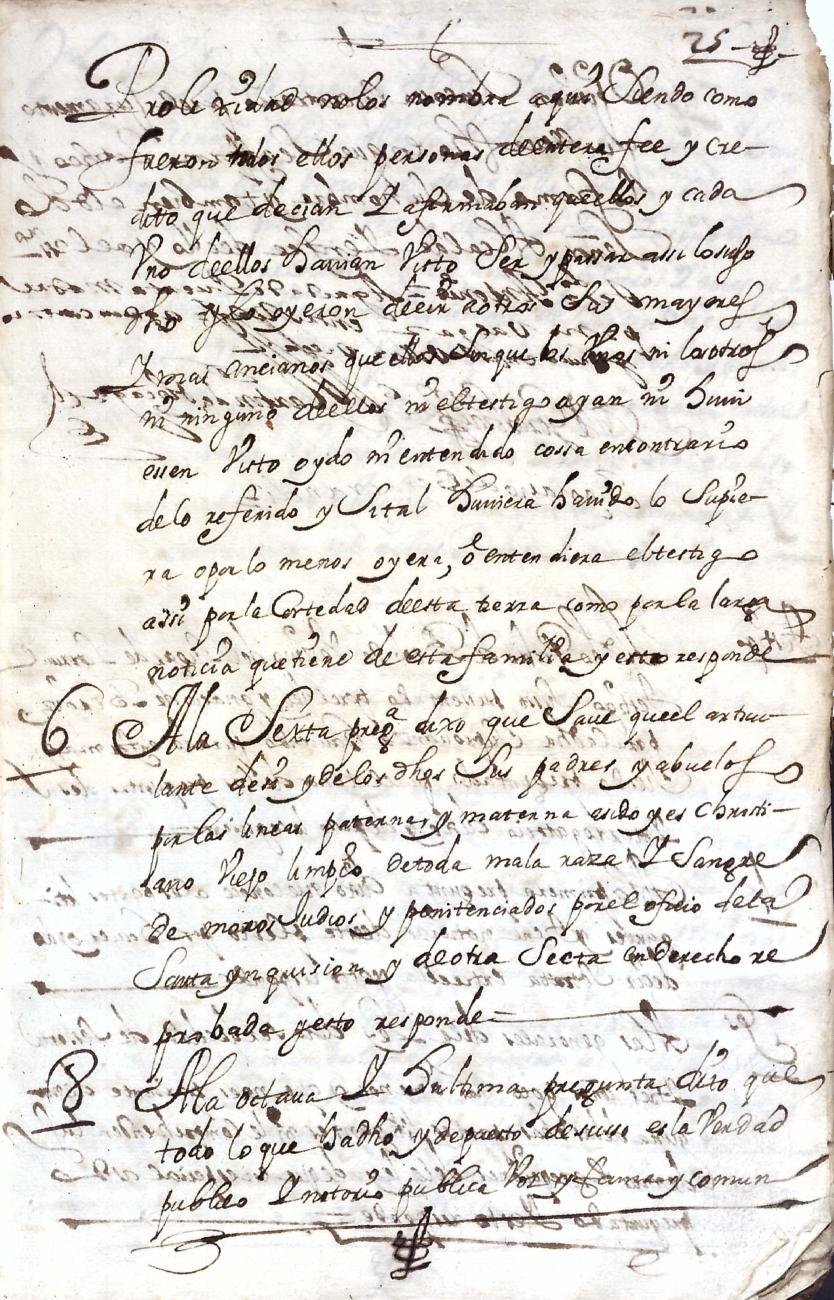 25
Prolixidad nolos nombra aqui Siendo como
fueron todos ellos personas deentera fee y cre-
dito que decian Y afirmaban queellos y cada
Uno deellos havian Visto Ser y passar assi losuso
dho y lo oyeron decir aotros Sus mayores
Y mas ancianos que ellos Sinque los Unos ni losotros
ni ninguno deellos ni eltestigo ayan ni huvi
essen Visto oydo ni entendido cossa encontrario
delo referido y Sital huviera havido lo Supie-
ra o por lo menos oyera, o entendiera eltestigo
assi por la Cortedad deesta tierra como por la larga
noticia quetiene de esta familia y esto responde
6 Ala Sexta pregª dixo que Save queel articu-
lante desi y delos dhos Sus padres y abuelos
por las lineas paterna, y materna esido y es Christi-
ano Viejo limpio detoda mala raza Y Sangre
de moros Judios y penitenciados por el oficio dela
Santa ynquision y deotra Secta en derecho re
probada y esto responde
8 Ala octava Y hultima pregunta dijo que
todo lo que hadho y depuesto desuso es la Verdad
publico Y notorio publica Voz y fama y comun